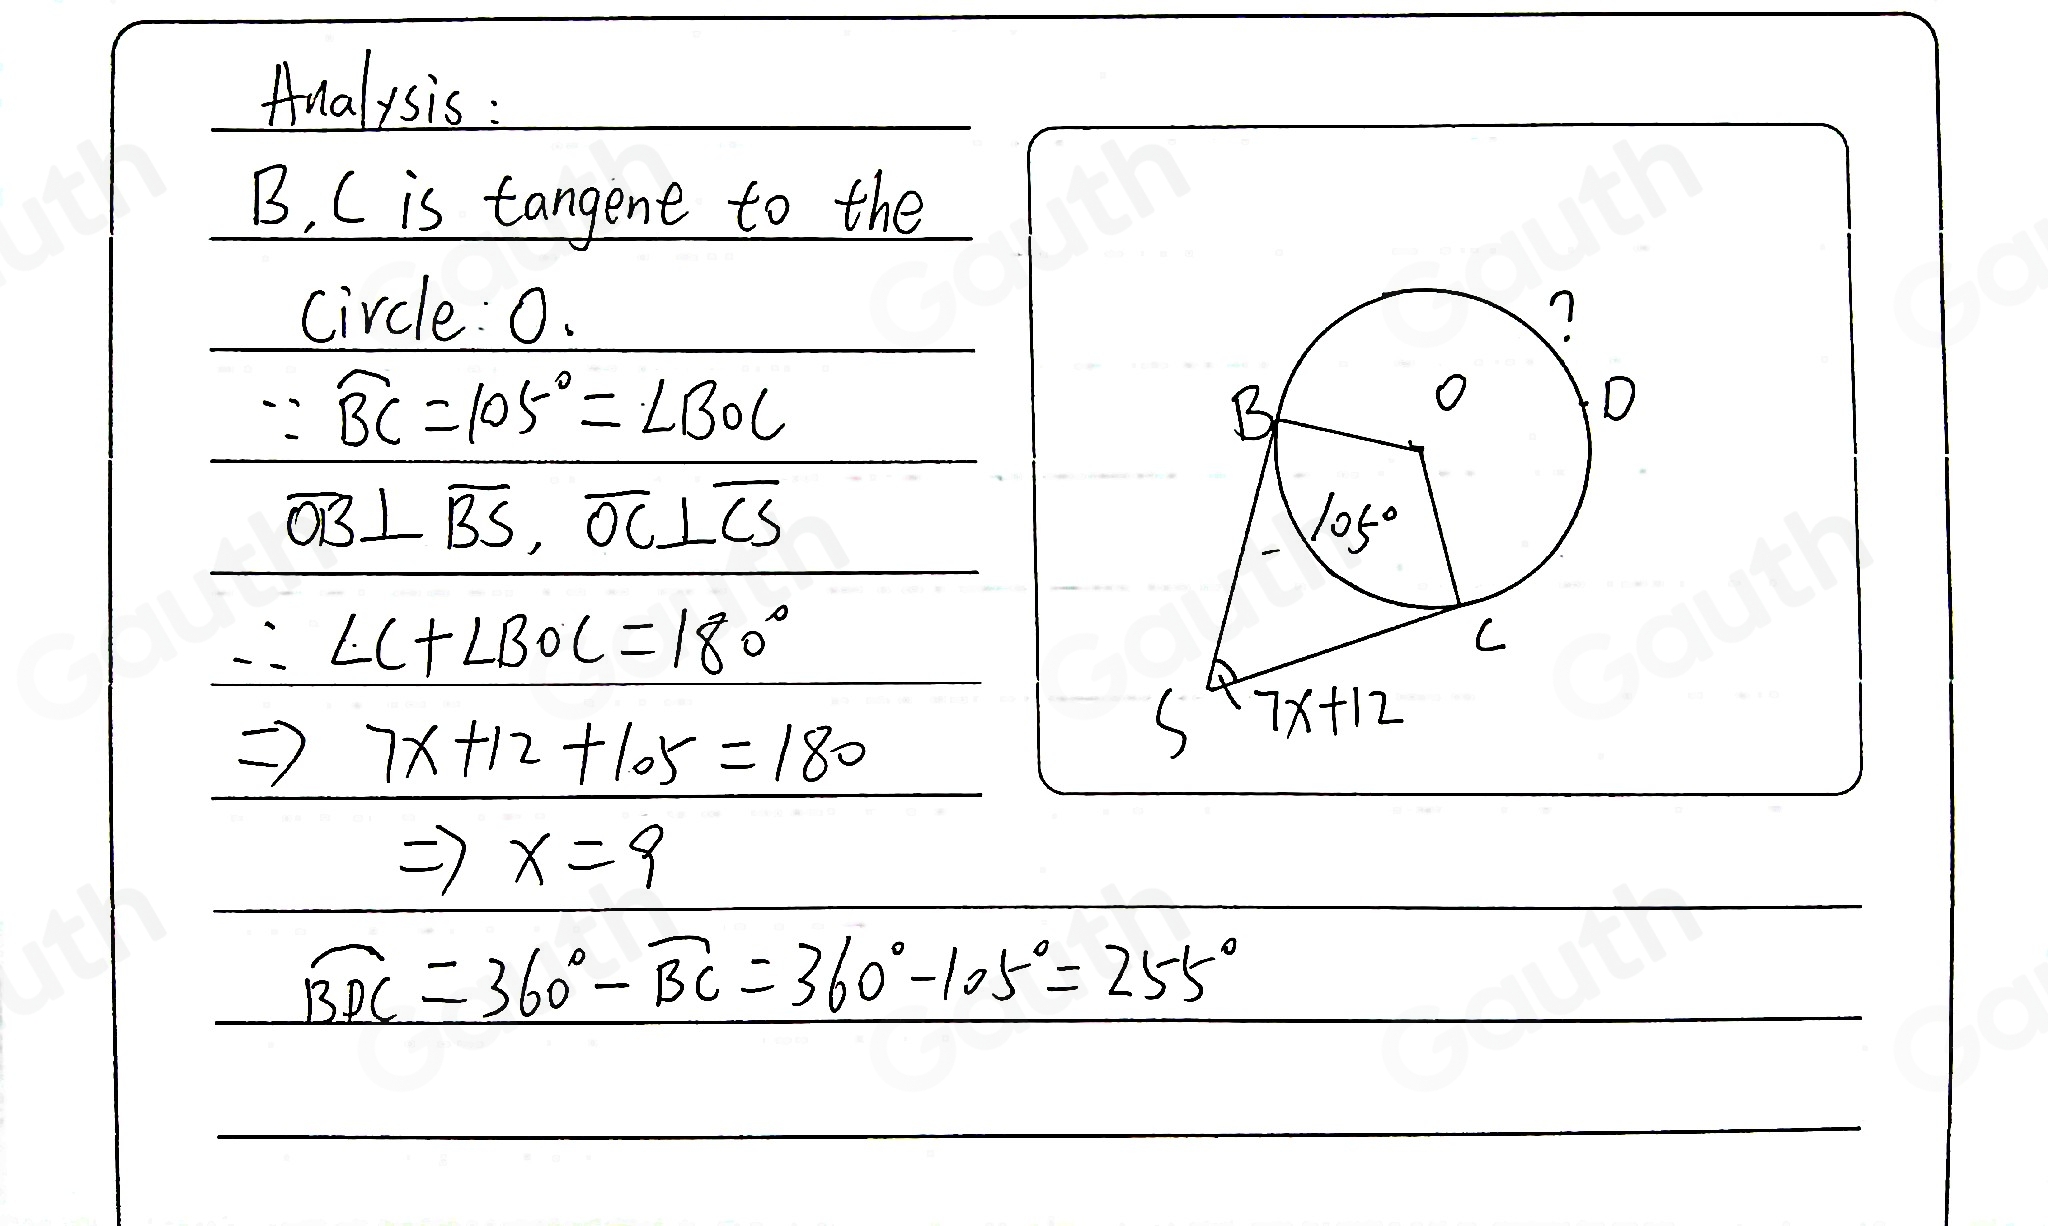 Analysis:
B, C is tangent to the
circle: O.
∵ B͡C = 105° = ∠BOC
O̅B̅ ⊥ B̅S̅, O̅C̅ ⊥ C̅S̅
∴ ∠C + ∠BOC = 180°
⇒ 7x + 12 + 105 = 180
⇒ x = 9
B͡DC = 360° - B͡C = 360° - 105° = 255°
?
B
O
D
105°
C
S
7x+12
Gauth